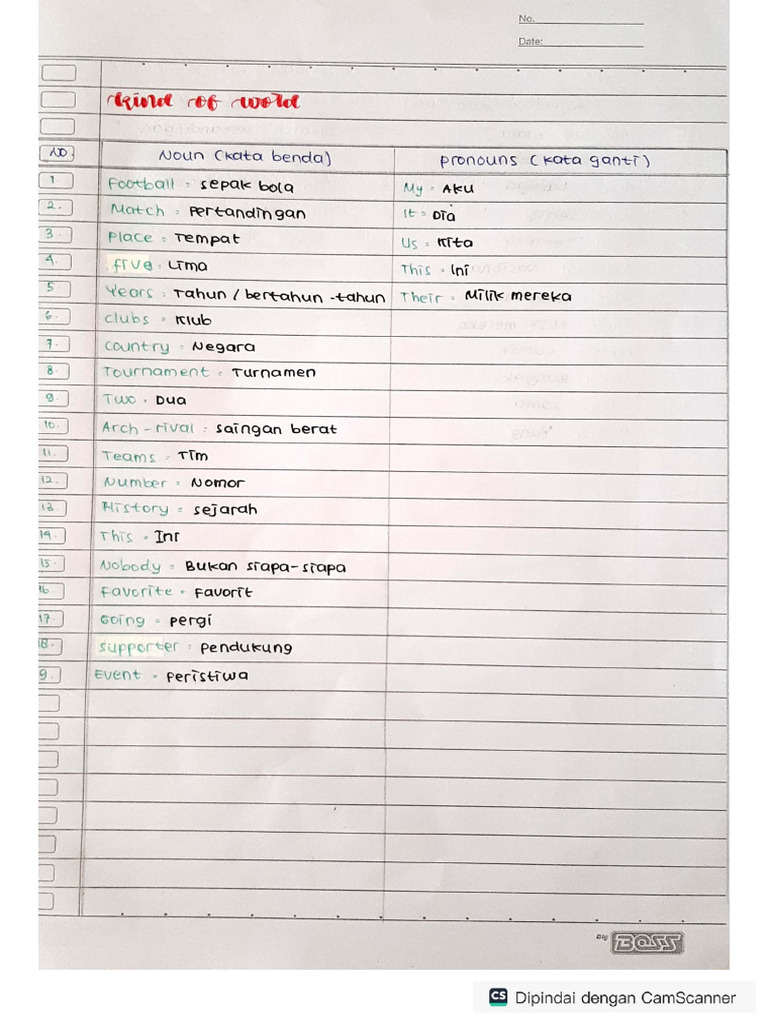 No.
Date:
Kind of Word
NO Noun (kata benda) pronouns (kata ganti)
1 Football = sepak bola My = AKU
2. Match = pertandingan It = Dia
3 Place = Tempat Us = Kita
4. five = Lima This = Ini
5 Years = Tahun / bertahun-tahun Their = Milik mereka
6. clubs = Klub
7. country = Negara
8 Tournament = Turnamen
9. Two = Dua
10. Arch-rival = saingan berat
11. Teams = Tim
12. Number = Nomor
13. History = sejarah
14. This = Ini
15 Nobody = Bukan siapa-siapa
16 Favorite = Favorit
17. Going = pergi
18. supporter = pendukung
9. Event = peristiwa
By BOSS
CS Dipindai dengan CamScanner